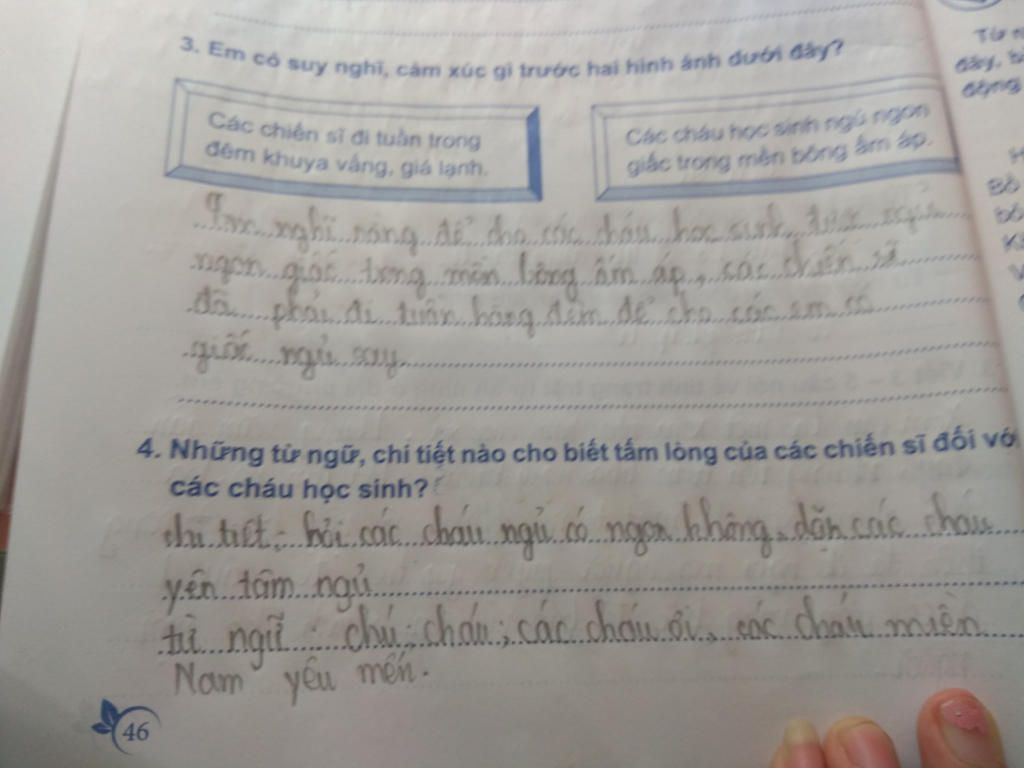 3. Em có suy nghĩ, cảm xúc gì trước hai hình ảnh dưới đây?
Các chiến sĩ đi tuần trong
đêm khuya vắng, giá lạnh.
Các cháu học sinh ngủ ngon
giấc trong mền bông ấm áp.
Em nghĩ rằng để cho các cháu học sinh được ngủ
ngon giấc trong mền bông ấm áp, các chiến sĩ
đã phải đi tuần hằng đêm để cho các em có
giấc ngủ say.
4. Những từ ngữ, chi tiết nào cho biết tấm lòng của các chiến sĩ đối vớ
các cháu học sinh?
chi tiết: hỏi các cháu ngủ có ngon không, dặn các cháu
yên tâm ngủ
từ ngữ: chú; cháu; các cháu ơi, các cháu miền
Nam yêu mến.
46
Từ n
đây, b
động
H
Bỏ
bó